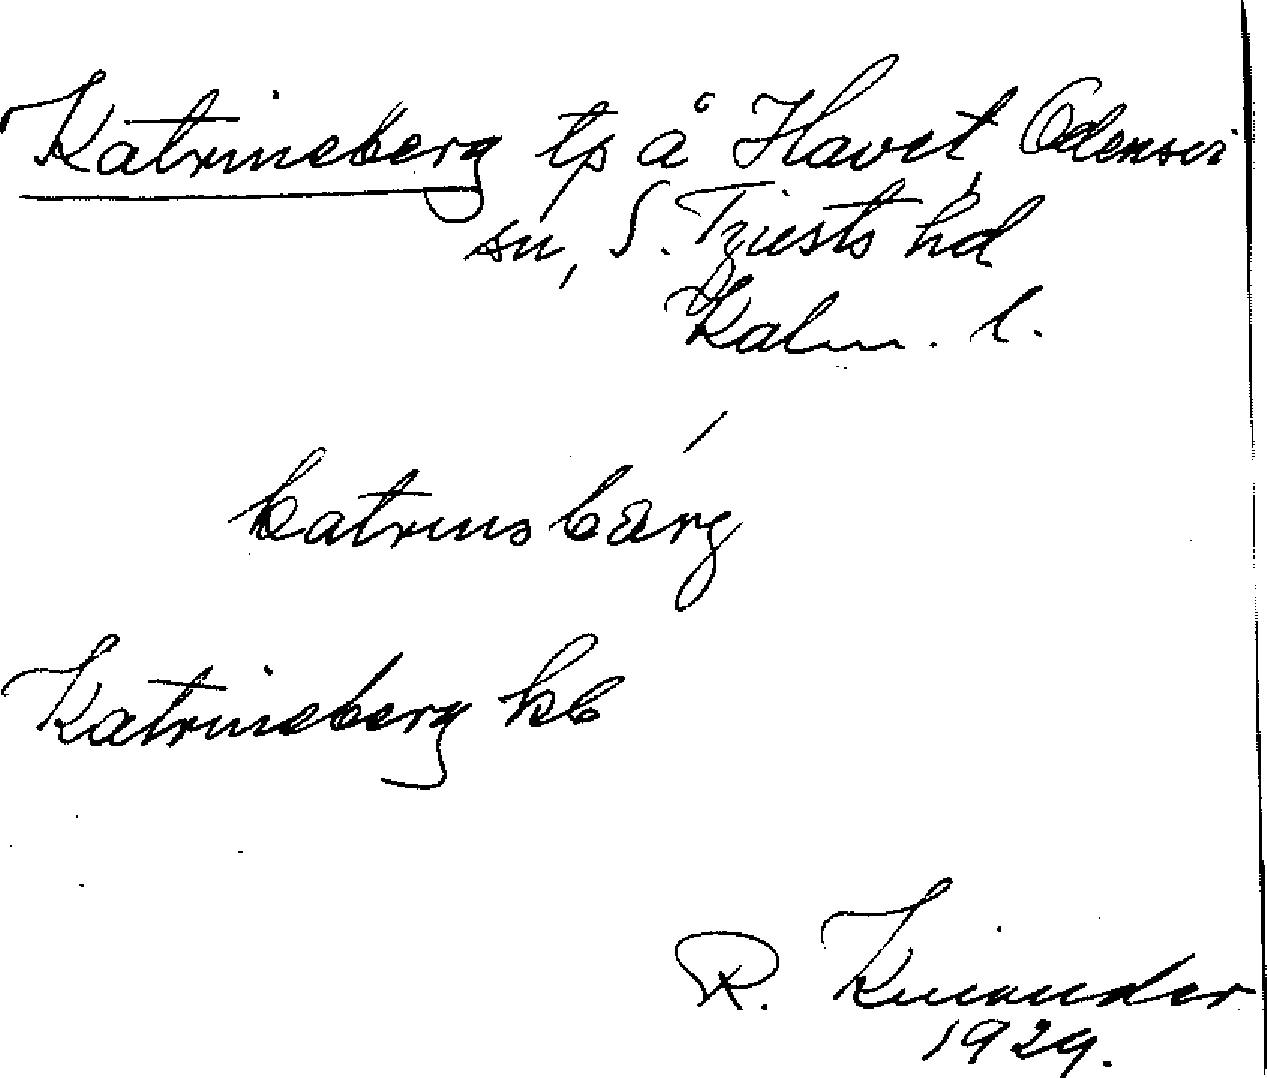 Katrineberg tp å Havet, Odensvi
sn, S. Tjusts hd
Kalm. l.
katrinsbärg
Katrineberg kb
R. Kinander
1929.